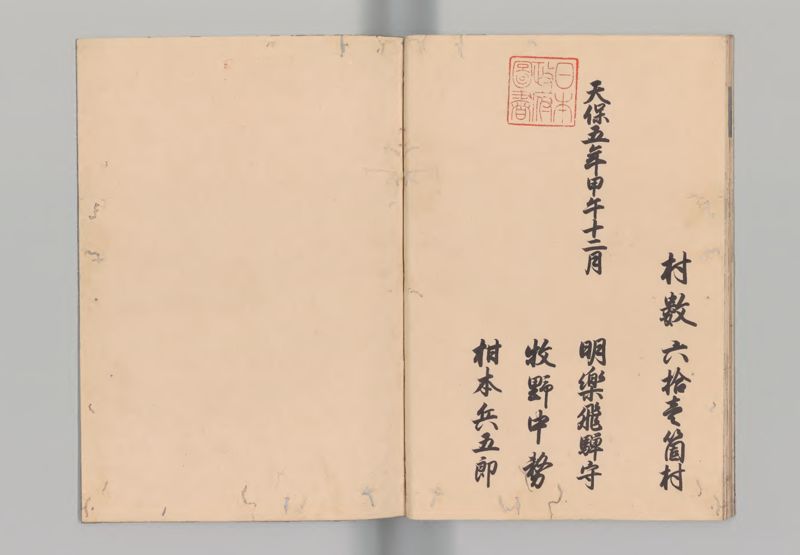 村數六拾壹箇村
天保五年甲午十二月
明樂飛驒守
牧野中務
柑本兵五郎
日本
政府
圖書